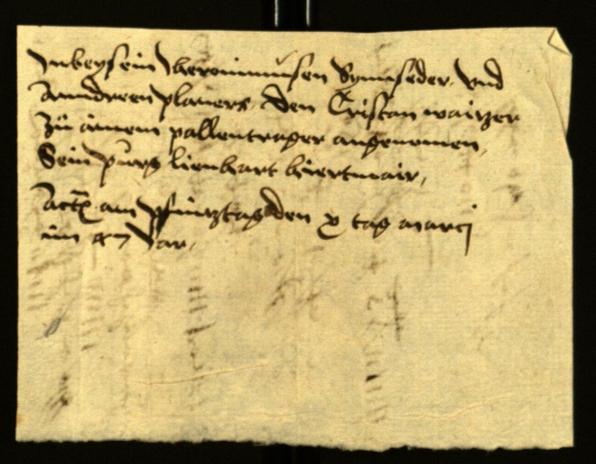 In beysein Iheronimusen Symseder, vnd
Anndreen planers, den Cristan waitzer
zu ainem pallentrager angenomen,
Sein purg lienhart hiertmair,
Actum am Pfintztag den x tag marcj
im Jar,